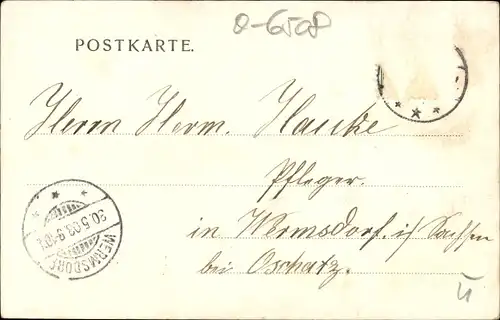 O-6508
POSTKARTE.
Herrn Herm. Hancke
Pfleger.
in Wermsdorf. i/ Sachsen
bei Oschatz.
WERMSDORF
20.5.03.8-9